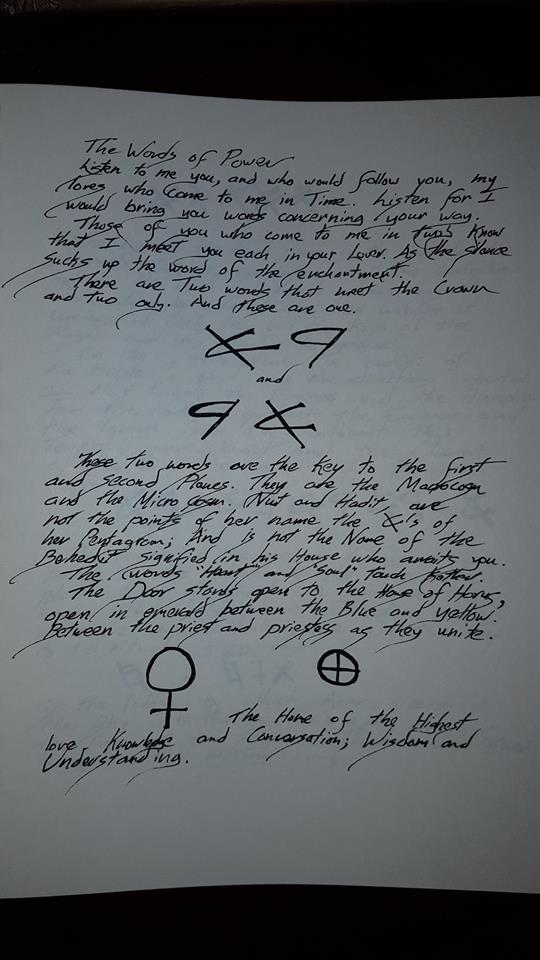 The Words of Power
Listen to me you, and who would follow you, my
loves who come to me in Time. Listen for I
would bring you words concerning your way.
Those of you who come to me in twos know
that I meet you each in your Lover. As the silence
sucks up the word of the enchantment.
There are Two words that meet the Crown
and two only. And these are one.
and
These two words are the Key to the first
and second Planes. They are the Macrocosm
and the Micro Cosm. Nuit and Hadit, are
not the points of her name the X's of
her Pentagram; And is not the Name of the
Behedit signified in his House who awaits you.
The words "Heart" and "Soul" touch
The Door stands open to the House of Horus,
open in emerald between the Blue and Yellow.
Between the priest and priestess as they unite.
The Home of the Highest
love, Knowledge and Conversation; Wisdom and
Understanding.